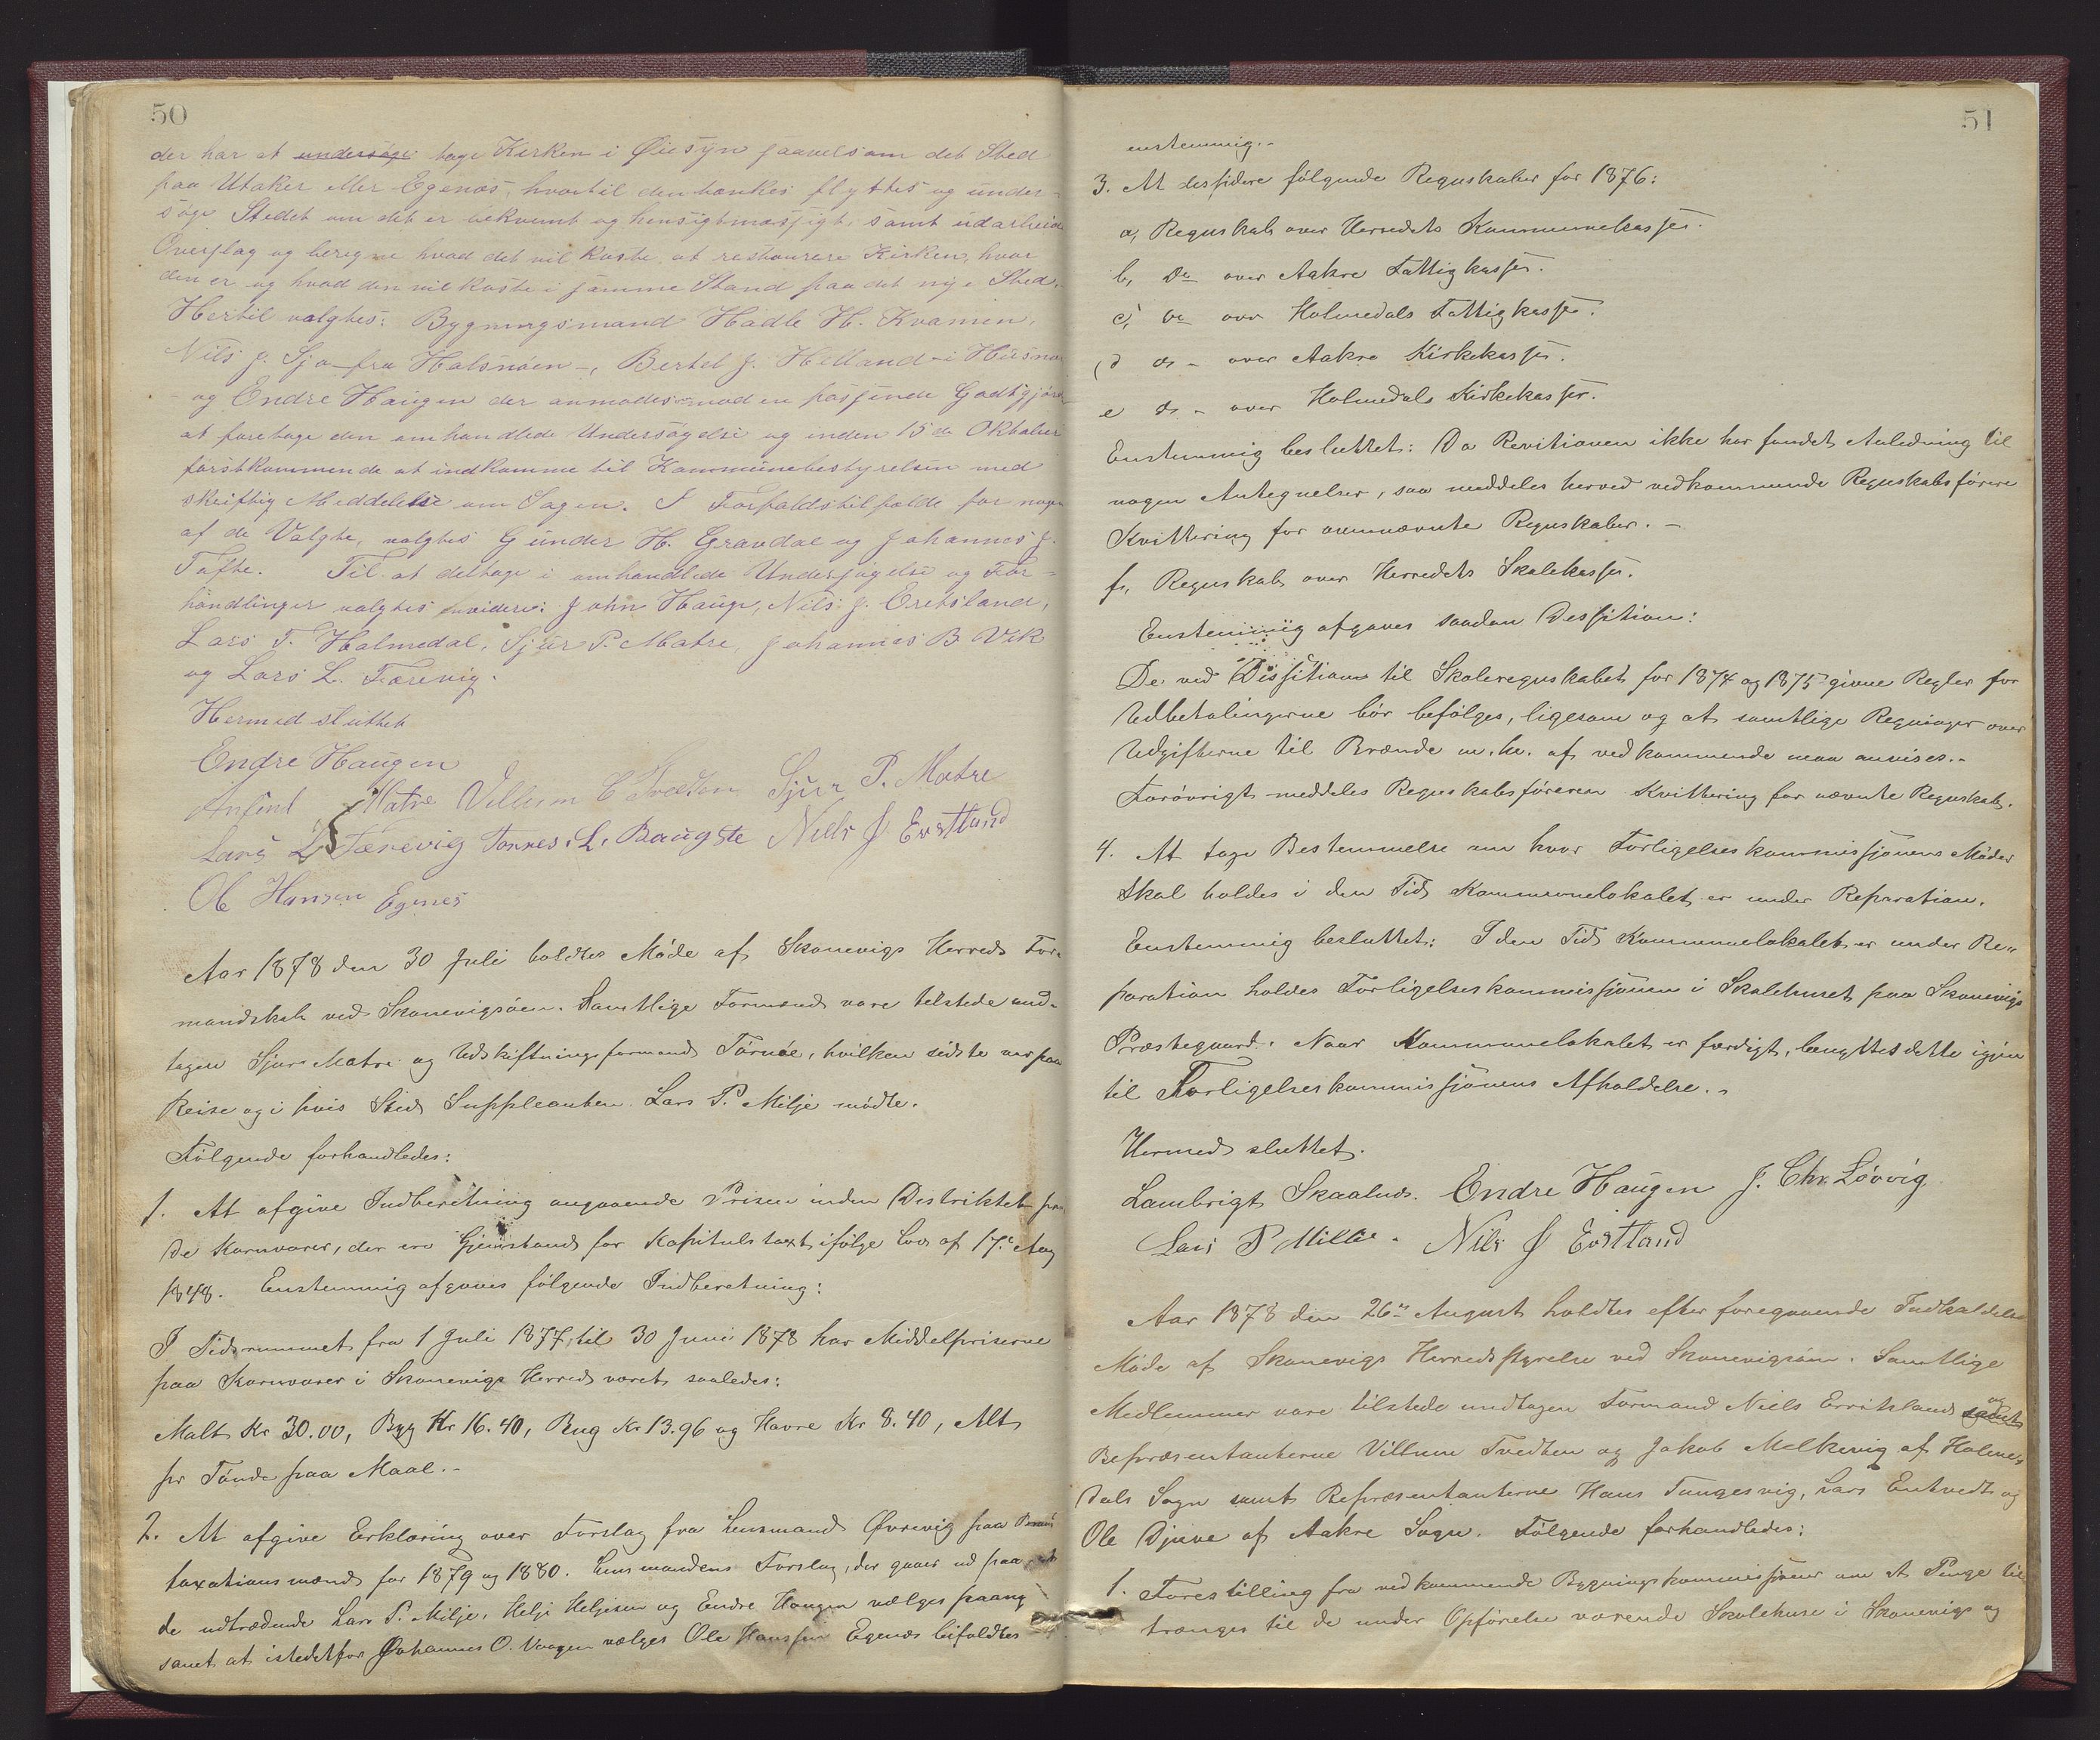 50
der har at undersøge tage Kirken i Øiesyn saavelsom det Sted
paa Utaker eller Egenæs, hvortil den tænkes flyttes og under-
søge Stedet om det er bekvemt og hensigtmæssigt, samt udarbeide
Overslag og beregne hvad det vil koste at restaurere Kirken, hvor
den er og hvad den vil koste i samme Stand paa det nye Sted.
Hertil valgtes: Bygningsmand Hadle H. Kvamen,
Nils J. Sjo fra Halsnøen -, Bertel J. Helland i Husnæs
og Endre Haugen der anmodes mod en passende Godtgjørelse
at foretage den omhandlede Undersøgelse og inden 15de Oktober
førstkommende at indkomme til Kommunebestyrelsen med
skriftlig Meddelelse om Sagen. I Forfaldstilfælde for nogen
af de Valgte, valgtes Gunder H. Gravdal og Johannes J.
Tofte. Til at deltage i omhandlede Undersøgelse og For-
handlinger valgtes videre: John Hauge, Nils J. Eretsland,
Lars T. Holmedal, Sjur P. Matre, Johannes B. Vik
og Lars L. Tærevig.
Hermed sluttet
Endre Haugen
Anfind Matre Villum E Tvedten Sjur P. Matre
Lars L Tærevig Tørres. L. Baugste Niels J Erstland
Ole Hansen Egenes
Aar 1878 den 30 Juli holdtes Møde af Skonevigs Herreds For-
mandskab ved Skonevigsøen. Samtlige Formænd vare tilstede und-
tagen Sjur Matre og Udskiftningsformand Tørnøe, hvilken sidste var paa
Reise og i hvis Sted Suppleanten Lars P. Milje mødte.
Følgende forhandledes:
1. At afgive Indberetning angaaende Prisen inden Distriktet paa
de Kornvarer, der ere Gjenstand for Kapitulstaxt ifølge Lov af 17de Aug
1848. Enstemmig afgaves følgende Indberetning:
I Tidsrummet fra 1 Juli 1877 til 30 Juni 1878 har Middelpriserne
paa Kornvarer i Skonevigs Herred været saaledes:
Malt Kr 30.00, Byg Kr 16.40, Rug Kr 13.96 og Havre Kr 8.40, Alt
pr Tønde paa Maal.-
2. At afgive Erklæring over Forslag fra Lensmand Øvrevig paa
taxationsmænd for 1879 og 1880. Lensmandens Forslag, der gaaer ud paa at
de udtrædende Lars P. Milje, Helje Heljesen og Endre Haugen vælges paany
samt at istedetfor Johannes O. Vaagen vælges Ole Hanssen Egenæs bifaldtes
51
enstemmig.-
3. At desidere følgende Regnskaber for 1876:
a, Regnskab over Herredets Kommunekasse.
b, Do over Aakre Fattigkasse.
c, Do over Holmedals Fattigkasse.
d do - over Aakre Kirkekasse.
e do - over Holmedals Kirkekasse.
Enstemmig besluttet: Da Revitionen ikke har fundet Anledning til
nogen Antegnelser, saa meddeles herved vedkommende Regnskabsførere
Kvittering for ovennævnte Regnskaber. -
f, Regnskab over Herredets Skolekasse.
Enstemmig afgaves saadan Dessition:
De ved Dissitionen til Skoleregnskabet for 1874 og 1875 givne Regler for
Udbetalingerne bør befølges, ligesom og at samtlige Regninger over
Udgifterne til Brænde m.m. af vedkommende maa anvises.-
Forøvrigt meddeles Regnskabsføreren Kvittering for nævnte Regnskab.
4. At tage Bestemmelse om hvor Forligelseskommissjonens Møder
skal holdes i den Tid Kommunelokalet er under Reparation.
Enstemmig besluttet: I den Tid Kommunelokalet er under Re-
paration holdes Forligelseskommissjonen i Skolehuset paa Skonevigs
Præstegaard. Naar Kommunelokalet er færdigt, benyttes dette igjen
til Forligelseskommissjonens Afholdelse.-
Hermed sluttet.
Lambrigt Skaalnes. Endre Haugen J. Chr. Løvvig
Lars P Millie. Nils J Erstland
Aar 1878 den 26de August holdtes efter foregaaende Indkaldelse
Møde af Skonevigs Herredsstyrelse ved Skonevigsøen. Samtlige
Medlemmer vare tilstede undtagen Formand Niels Erritsland samt og
Repræsentanterne Villum Tvedten og Jakob Melkevig af Holme-
dals Sogn samt Repræsentanterne Hans Tungesvig, Lars Entvedt og
Ole Djuve af Aakre Sogn. Følgende forhandledes:
1. Forestilling fra vedkommende Bygningskommissjoner om at Penge til-
trænges til de under Opførelse værende Skolehuse i Skonevigs og